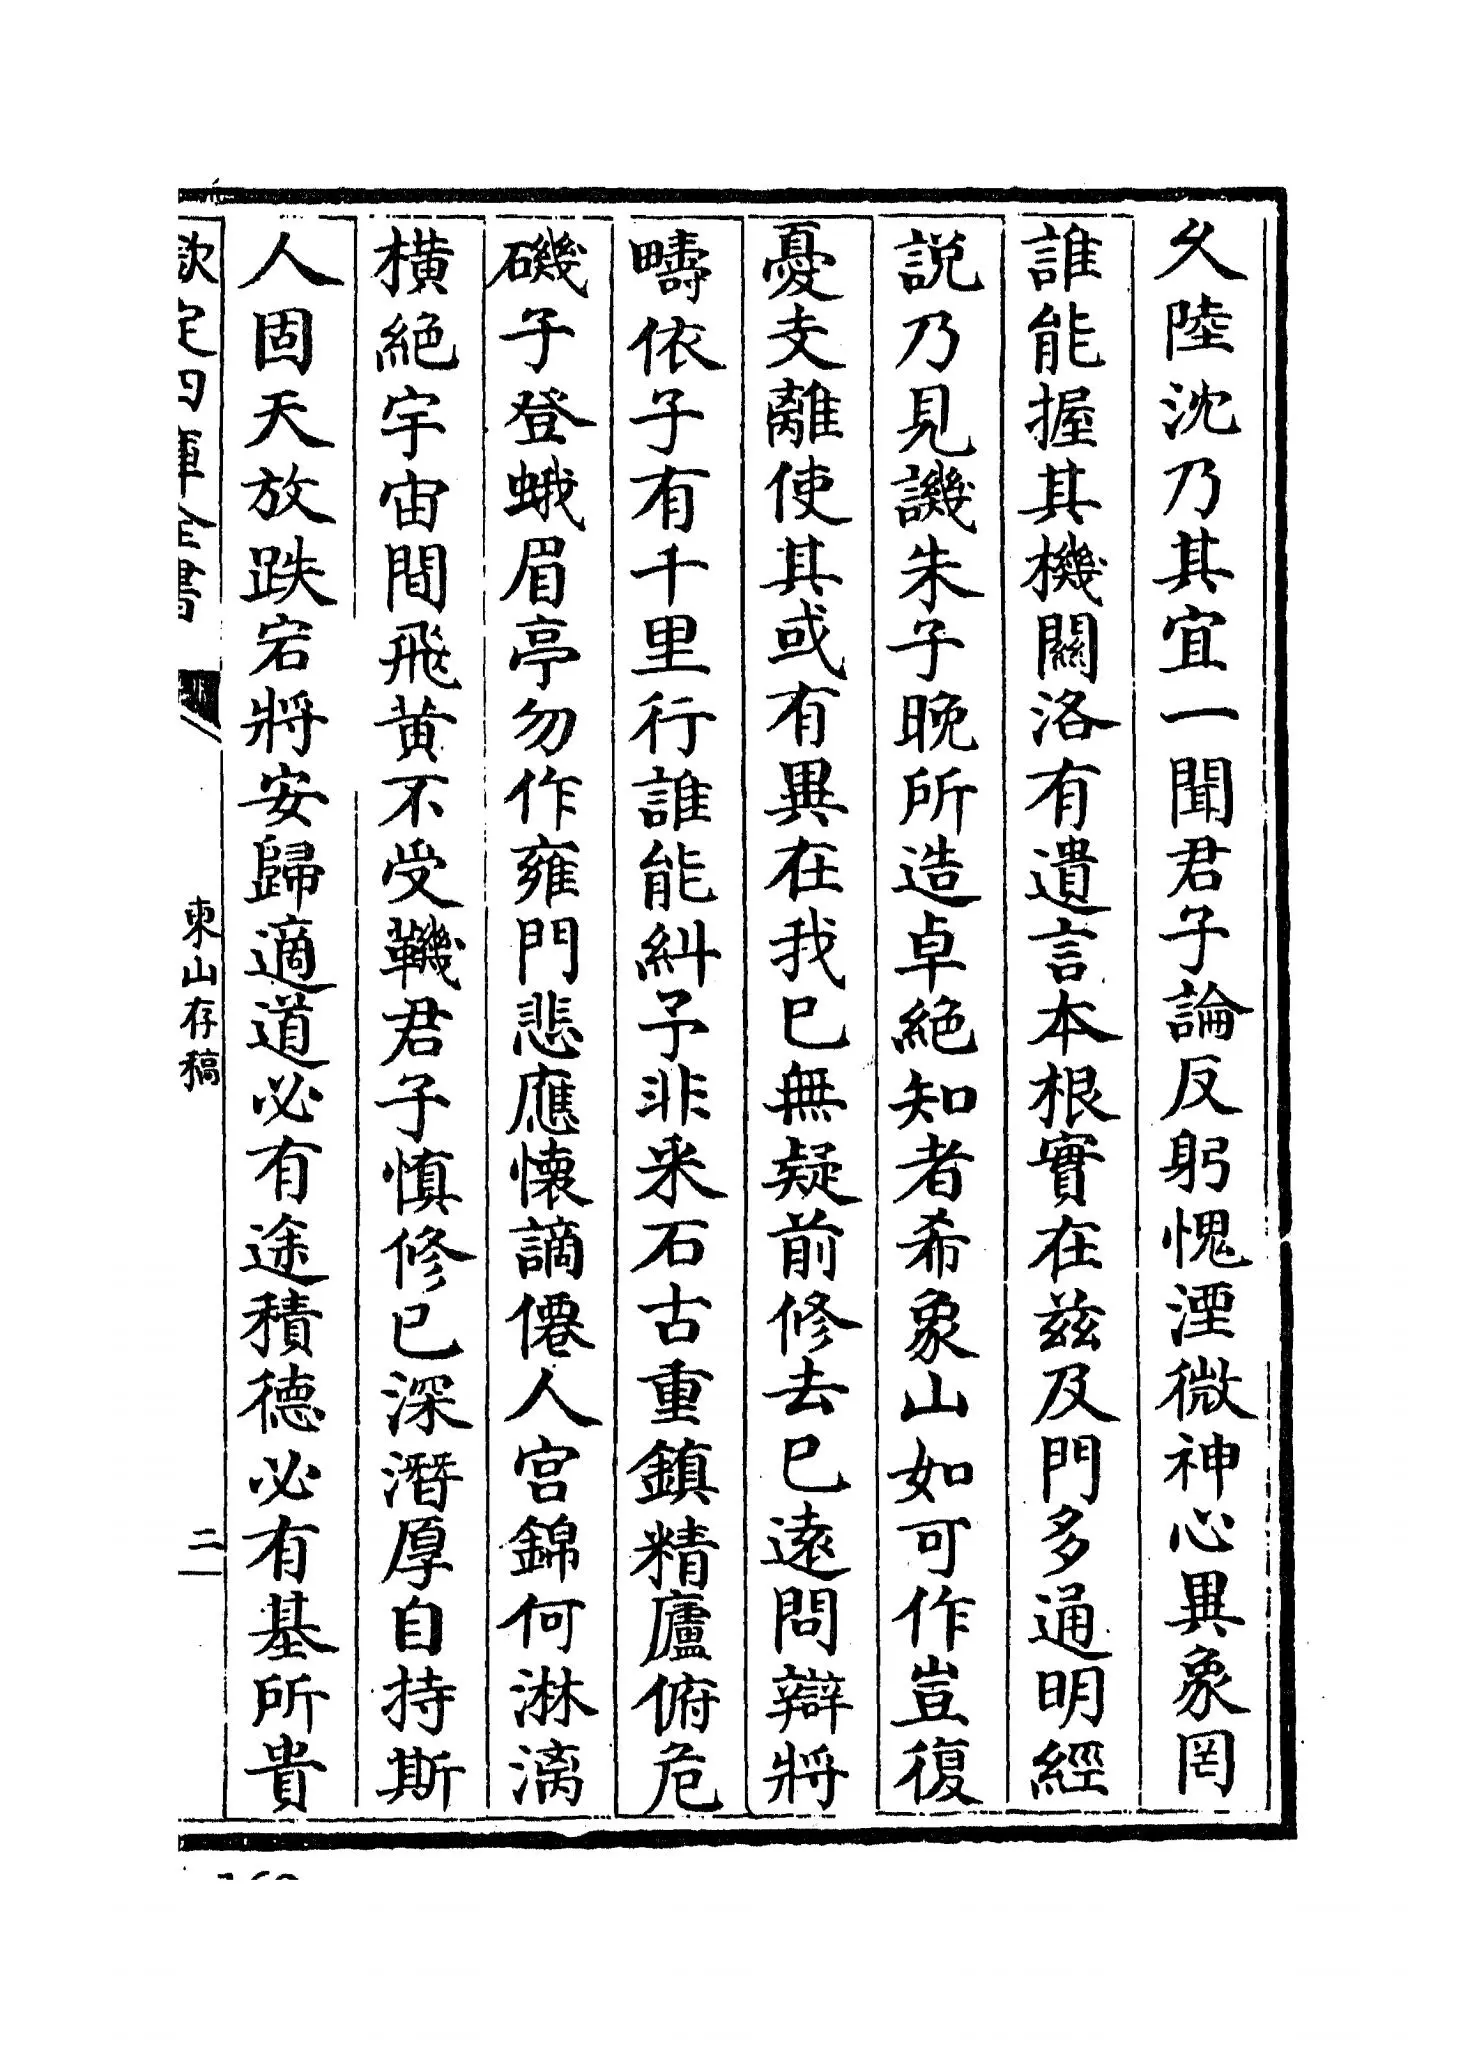 久陸沈乃其宜一聞君子論反躬愧湮微神心異象罔
誰能握其機關洛有遺言本根實在兹及門多通明經
説乃見譏朱子晚所造卓絶知者希象山如可作豈復
憂支離使其或有異在我已無疑前修去已遠問辯將
疇依子有千里行誰能糾予非采石古重鎮精廬俯危
磯子登蛾眉亭勿作雍門悲應懐謫僊人宫錦何淋漓
横絶宇宙間飛黄不受鞿君子慎修已深潛厚自持斯
人固天放跌宕將安歸適道必有途積徳必有基所貴
欽定四庫全書
東山存稿
二